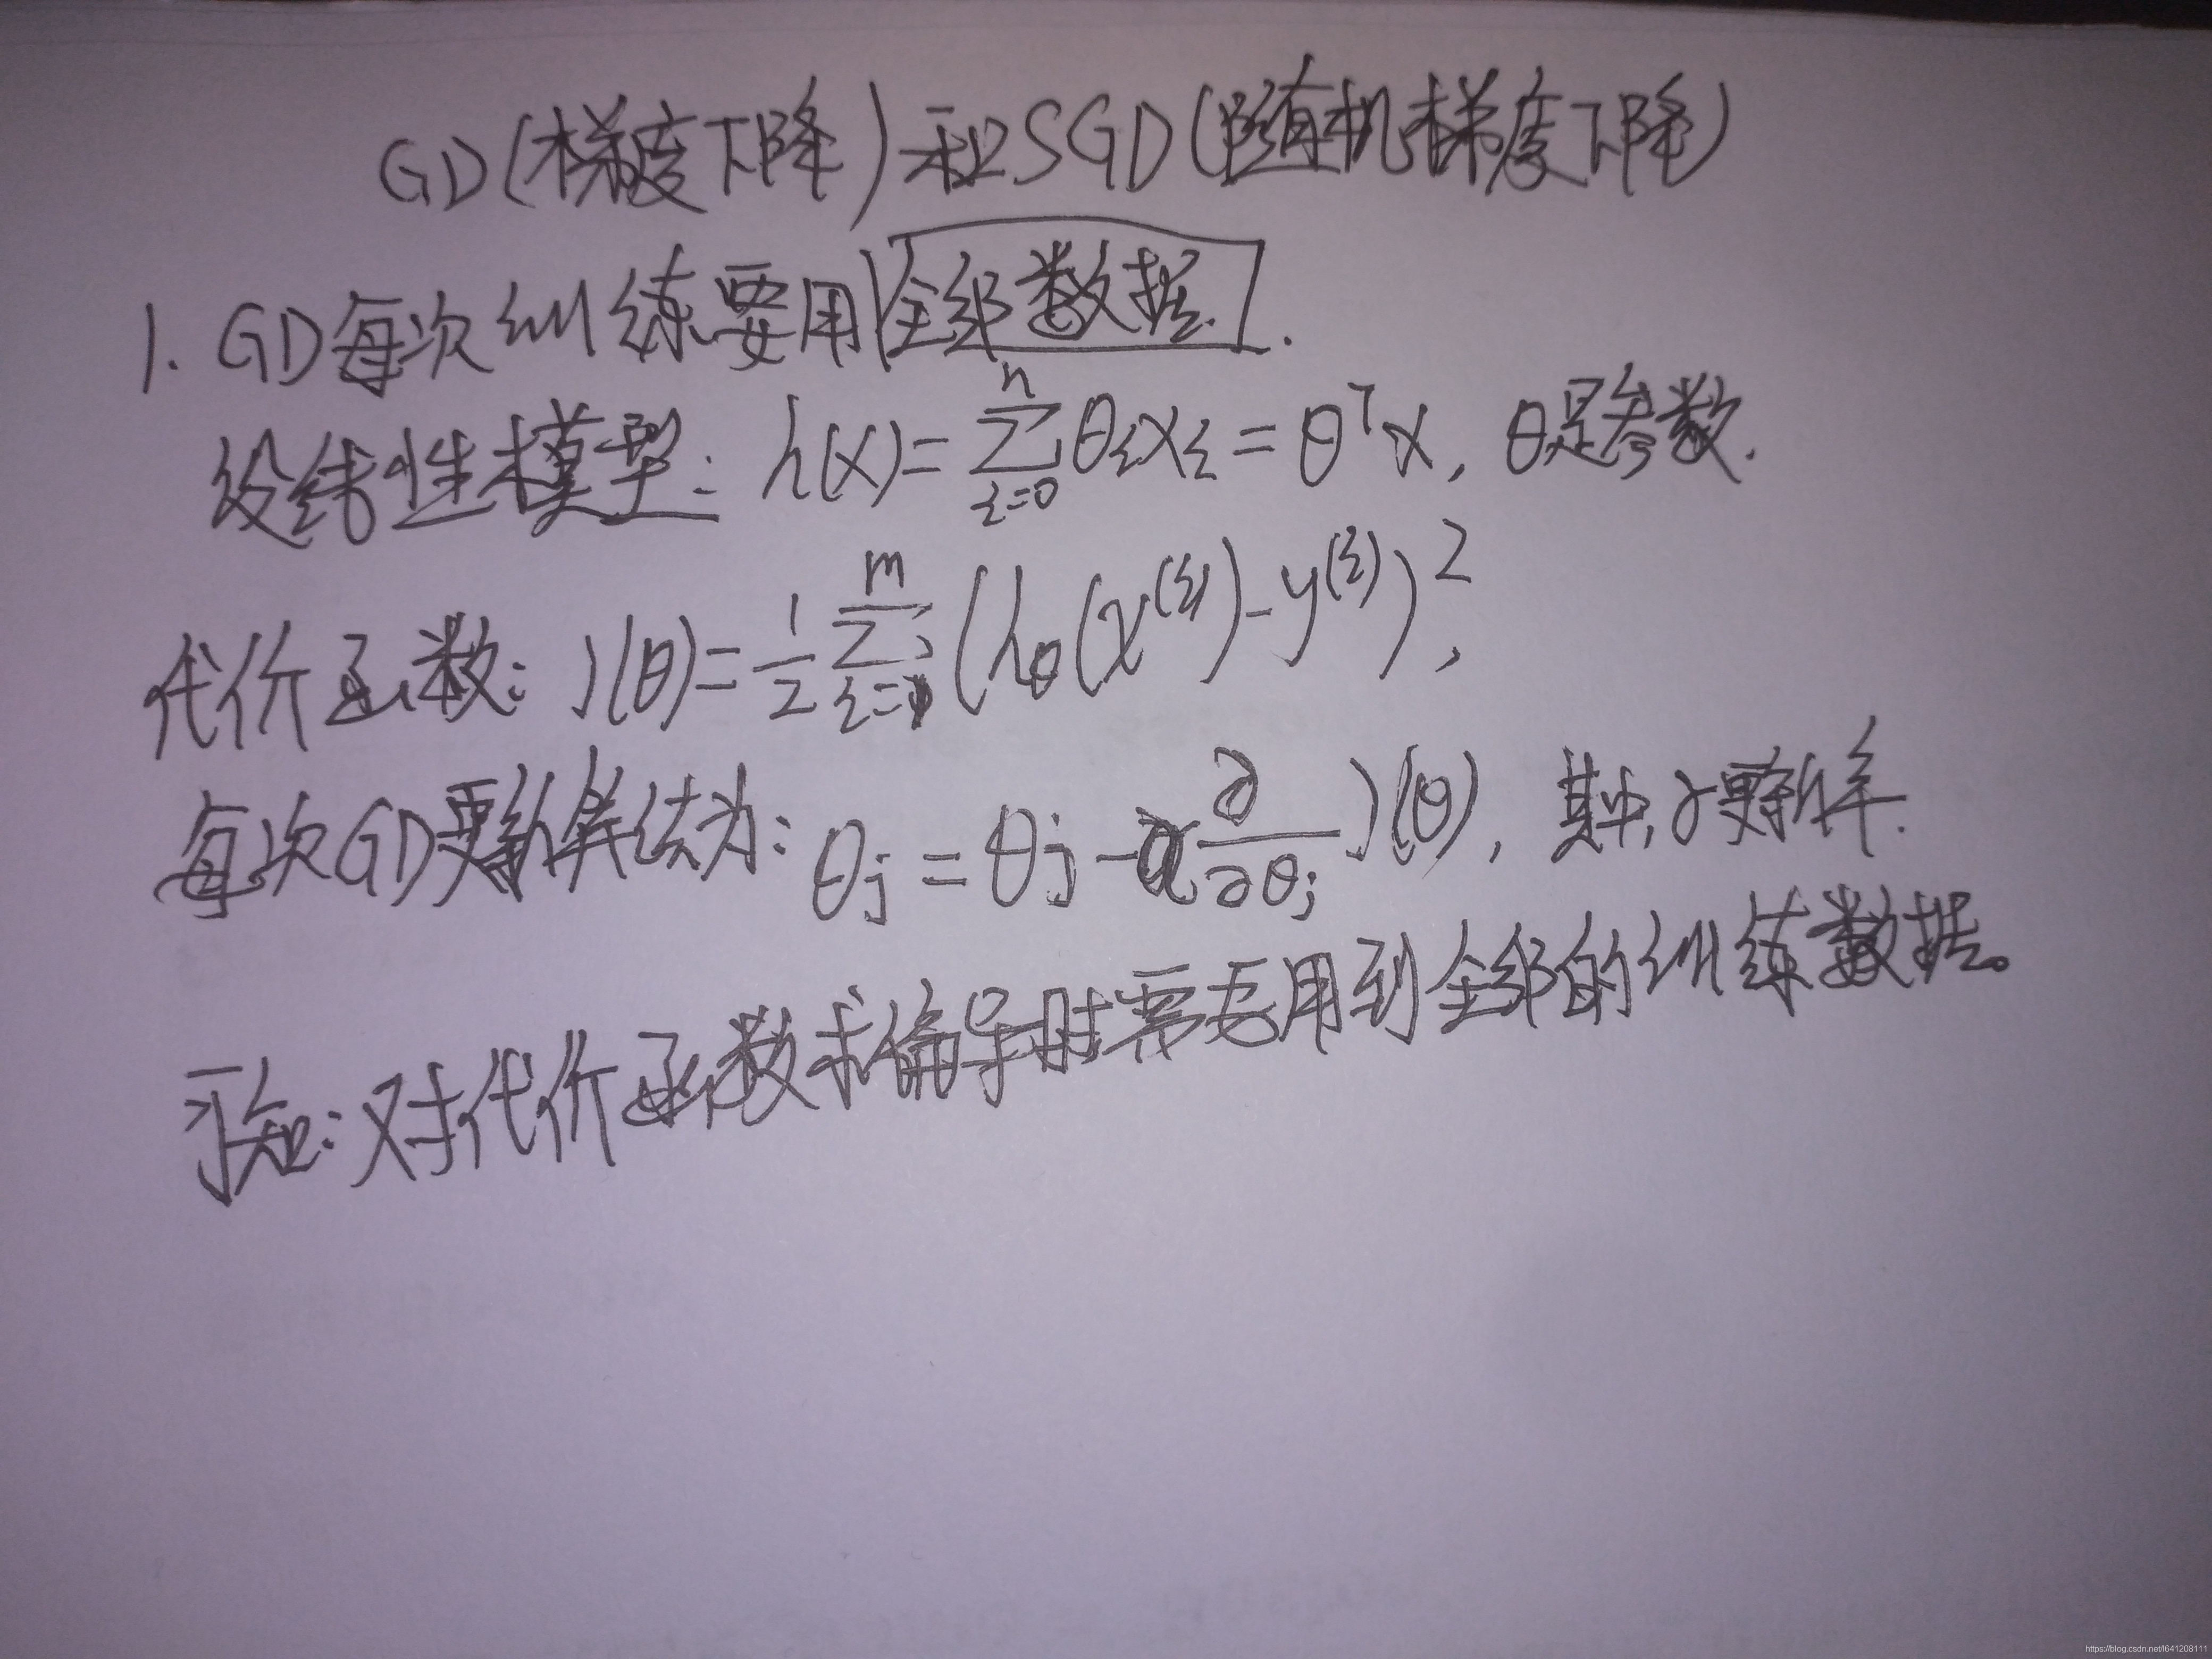 GD(梯度下降)和SGD(随机梯度下降)
1. GD每次训练要用全部数据.
设线性模型: h(x)=∑_{i=0}^{n}θᵢxᵢ=θᵀx, θ是参数.
代价函数: J(θ)=1/2 ∑_{i=1}^{m}(h_θ(x^{(i)})-y^{(i)})²,
每次GD更新算法为: θⱼ=θⱼ-α ∂/∂θⱼ J(θ), 其中,α更新率.
可知:对代价函数求偏导时需要用到全部的训练数据。
https://blog.csdn.net/l641208111